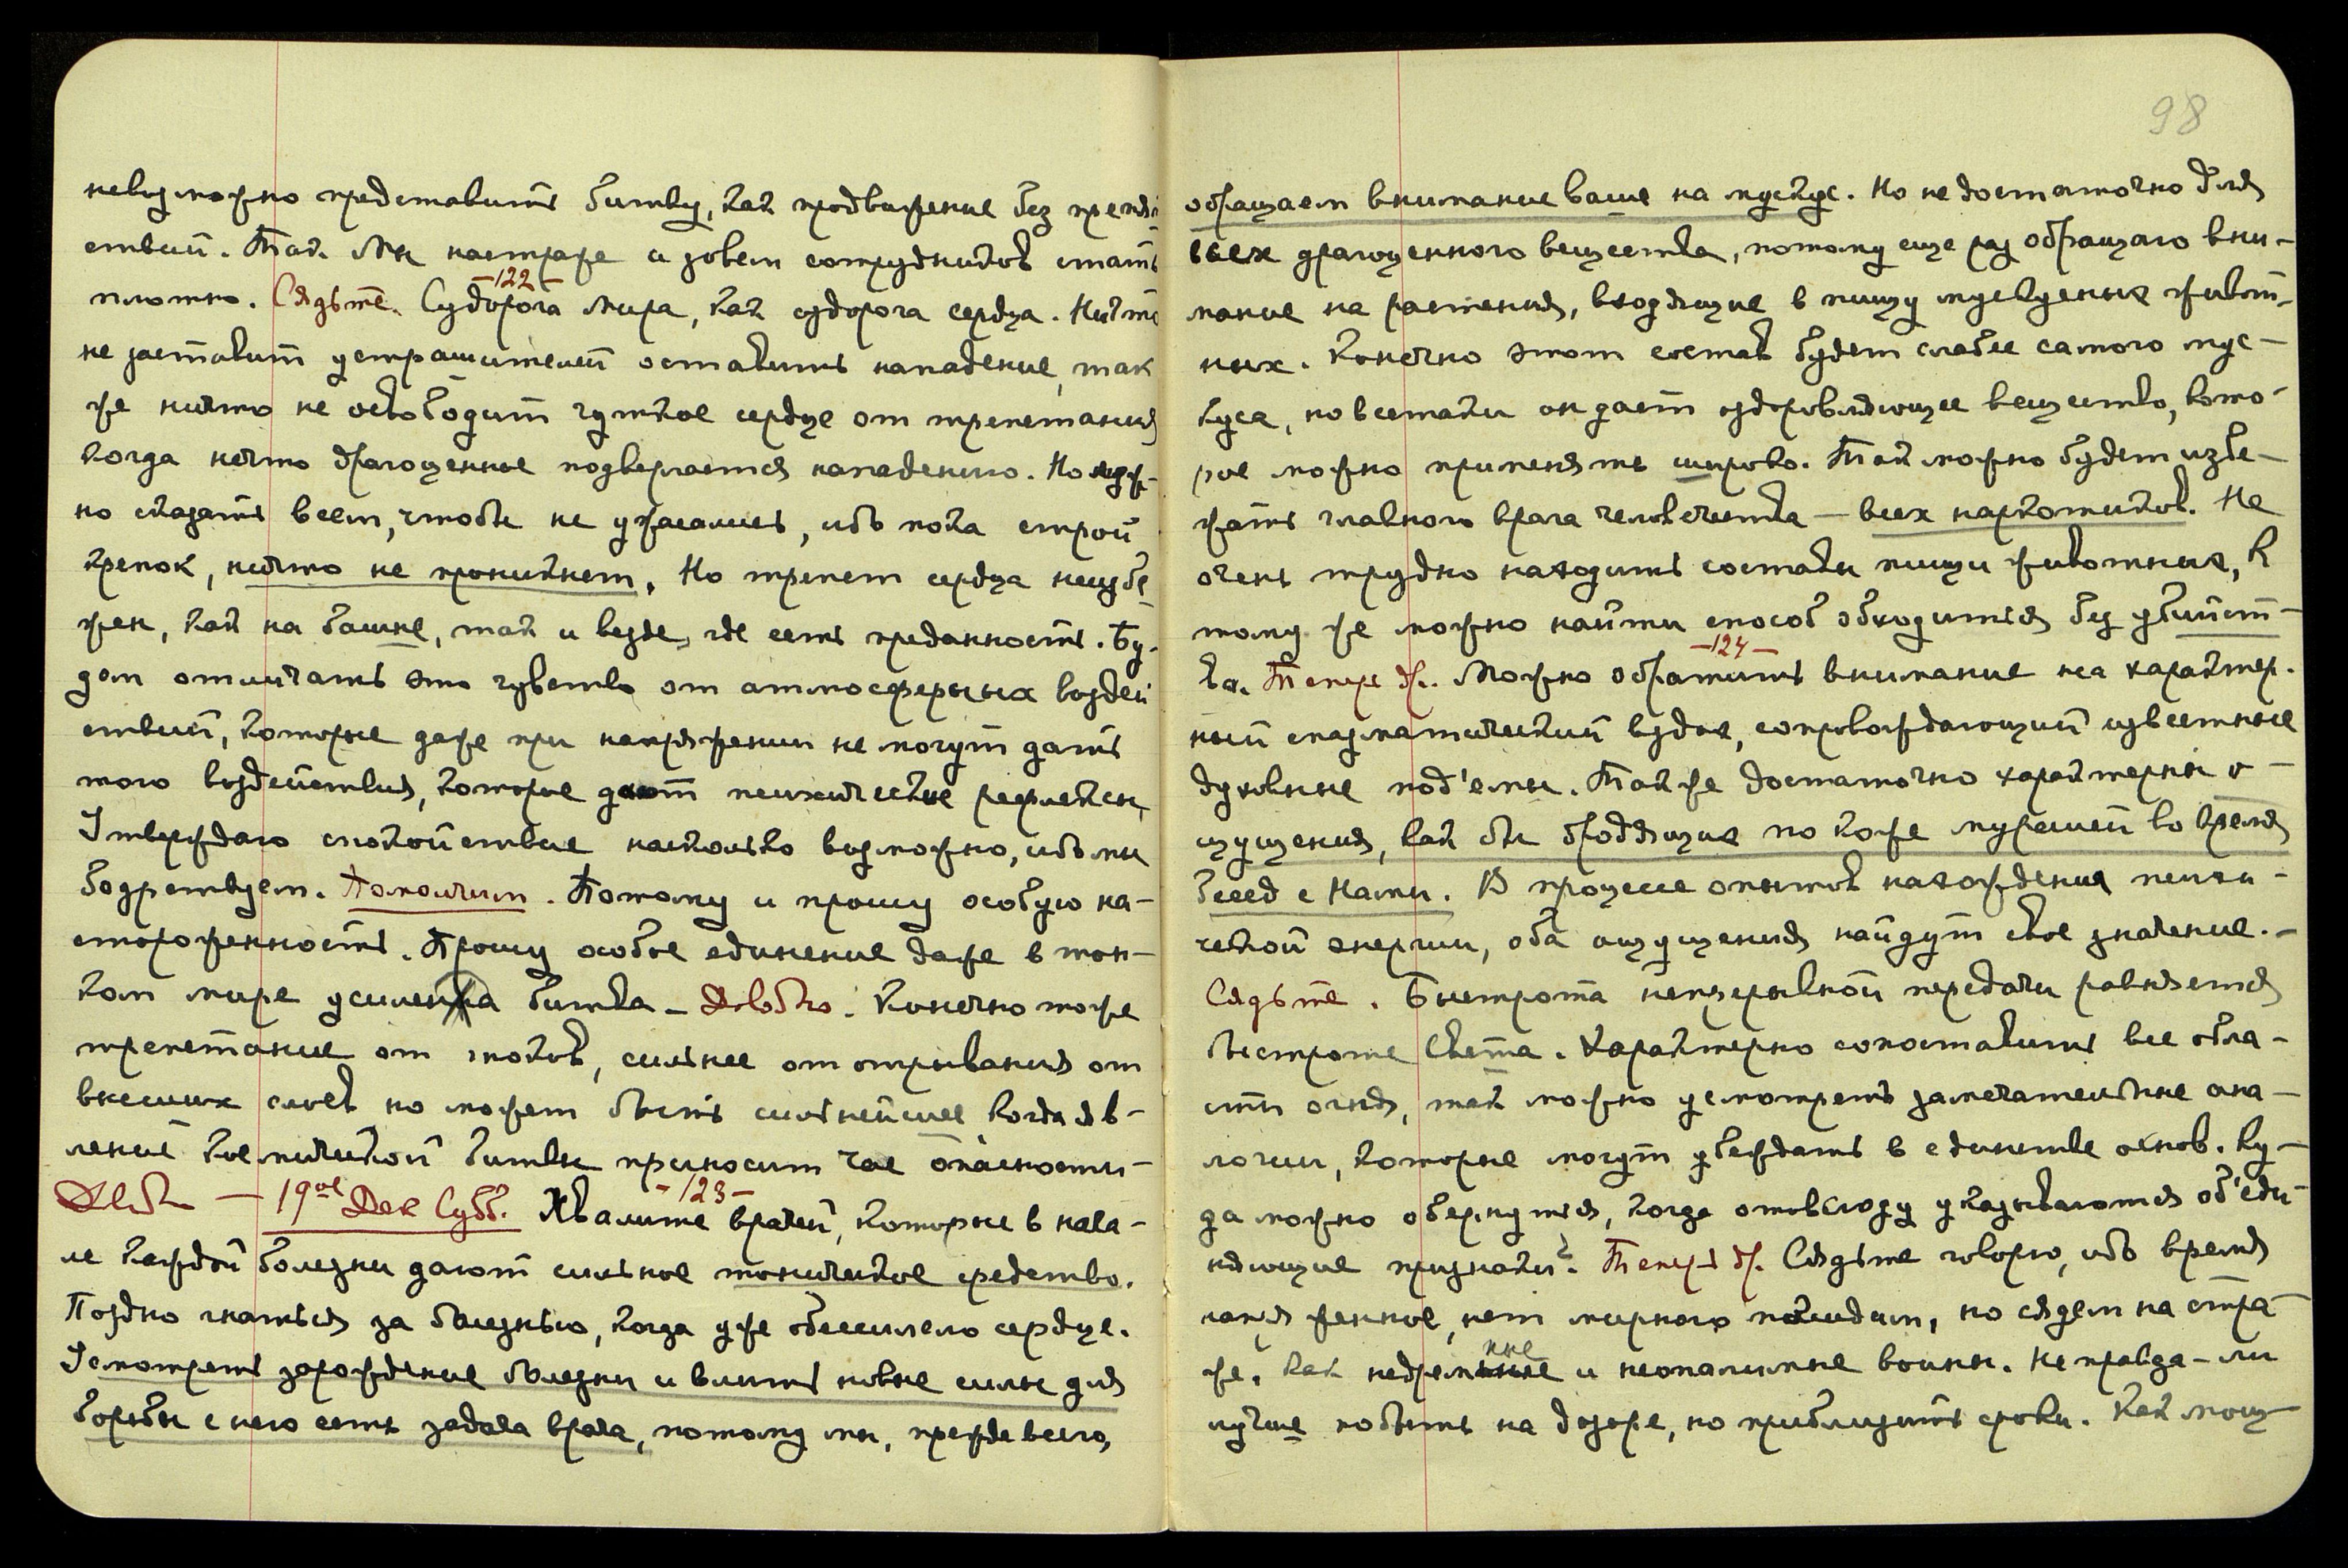 невозможно представить битву, как продвижение без препят-
ствий. Так Мы на страже и зовем сотрудников стать
плотно. Сядьте. -122- Судорога Мира, как судорога сердца. Ничто
не заставит устрашителей оставить нападение, так
же ничто не освободит чуткое сердце от трепетания
когда нечто драгоценное подвергается нападению. Но нуж-
но сказать всем, чтобы не ужасались, ибо пока строй
крепок, ничто не проникнет. Но трепет сердца неизбе-
жен, как на башне, так и везде, где есть преданность. Бу-
дем отличать это чувство от атмосферных воздей
ствий, которые даже при напряжении не могут дать
того воздействия, которое дают психические рефлексы,
Утверждаю спокойствие насколько возможно, ибо мы
бодрствуем. Помолчим. Потому и прошу особую на-
стороженность. Прошу особое единение даже в тон-
ком мире усилена битва – Довольно. Конечно тоже
трепетание от токов, сильнее от отрывания от
внешних слоев но может быть сильнейшее когда яв-
ление космической битвы приносит час опасности -
— 19ое Дек Субб. -123- Хвалите врачей, которые в нача-
ле каждой болезни дают сильное тоническое средство.
Поздно гнаться за болезнью, когда уже обессилело сердце.
Усмотреть зарождение болезни и влить новые силы для
борьбы с нею есть задача врача, потому мы, прежде всего,
98
обращаем внимание ваше на мускус. Но не достаточно для
всех драгоценного вещества, потому еще раз обращаю вни-
мание на растения, входящие в пищу мускусных живот-
ных. Конечно этот состав будет слабее самого мус-
куса, но все таки он дает оздоровляющее вещество, кото-
рое можно применять широко. Так можно будет избе-
жать главного врага человечества — всех наркотиков. Не
очень трудно находить составы пищи животных, к
тому же можно найти способ обходиться без убийст-
ва. Теперь др. -124- Можно обратить внимание на характер-
ный спазматический вздох, сопровождающий известные
духовные под'емы. Так же достаточно характерны о-
щущения, как бы бродящих по коже мурашей во время
бесед с Нами. В процессе опытов нахождения психи-
ческой энергии, оба ощущения найдут свое значение. -
Сядьте. Быстрота непрерывной передачи равняется
быстроте Света. Характерно сопоставить все обла-
сти огня, так можно усмотреть замечательные ана-
логии, которые могут убеждать в единстве основ. Ку-
да можно обернуться, когда отовсюду указываются об'еди-
няющие признаки? Теперь др. Сядьте говорю, ибо время
напряженное, нет мирного посидим, но сядем на стра-
же, как недремлные и неопалимые воины. Не правда-ли
лучше побыть на дозоре, но приблизить сроки. Как мощ